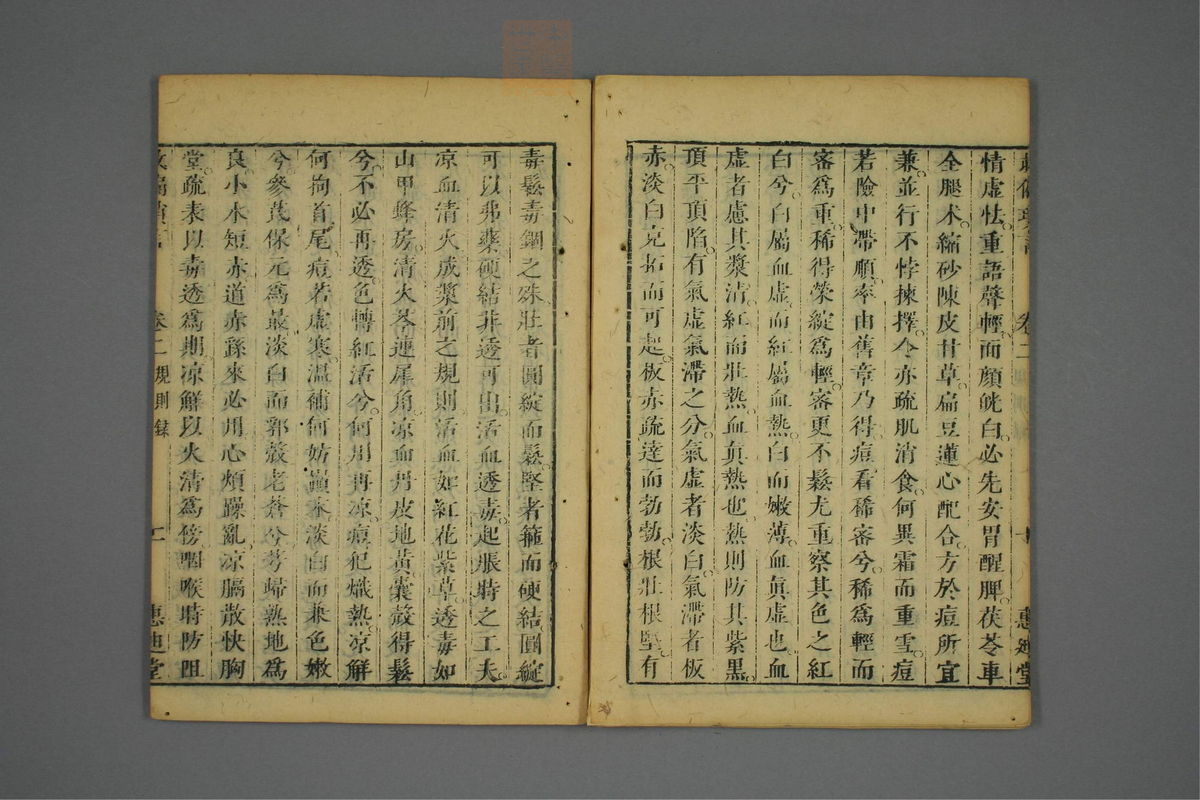 情虛怯重語聲輕而顏皝白必先安胃醒脾茯苓車
全腿术縮砂陳皮甘草扁豆蓮心配合方於痘所宜
兼並行不悖揀擇今亦疏肌消食何異霜而重雪痘
若險中帶順率由舊章乃得痘看稀審兮稀爲輕而
審爲重稀得榮綻爲輕審更不鬆尤重察其色之紅
白兮白屬血虛而紅屬血熱白而嫩薄血眞虛也血
虛者慮其漿清紅而壯熱血眞熱也熱則防其紫黑
頂平頂陷有氣虛氣滯之分氣虛者淡白氣滯者板
赤淡白克拓而可起板赤疏達而勃勃根壯根堅有
毒鬆毒錮之殊壯者圓綻而鬆堅者箍而硬結圓綻
可以弗藥硬結非透可出活血透毒起脹時之工夫
凉血清火成漿前之規則活血如紅花紫草透毒如
山甲蜂房清火芩連犀角凉血丹皮地黃囊殼得鬆
兮不必再透色轉紅活兮何用再凉痘犯熾熱凉解
何拘首尾痘若虛寒溫補何妨淡白而兼色嫩
兮參茋保元爲最淡白而郭殼老蒼兮芎歸熟地爲
良小水短赤道赤來必用心煩躁亂凉膈散快胸
堂疏表以毒透爲期凉解以火清爲傍咽喉時防阻
卷二 規則錄
惠迪堂